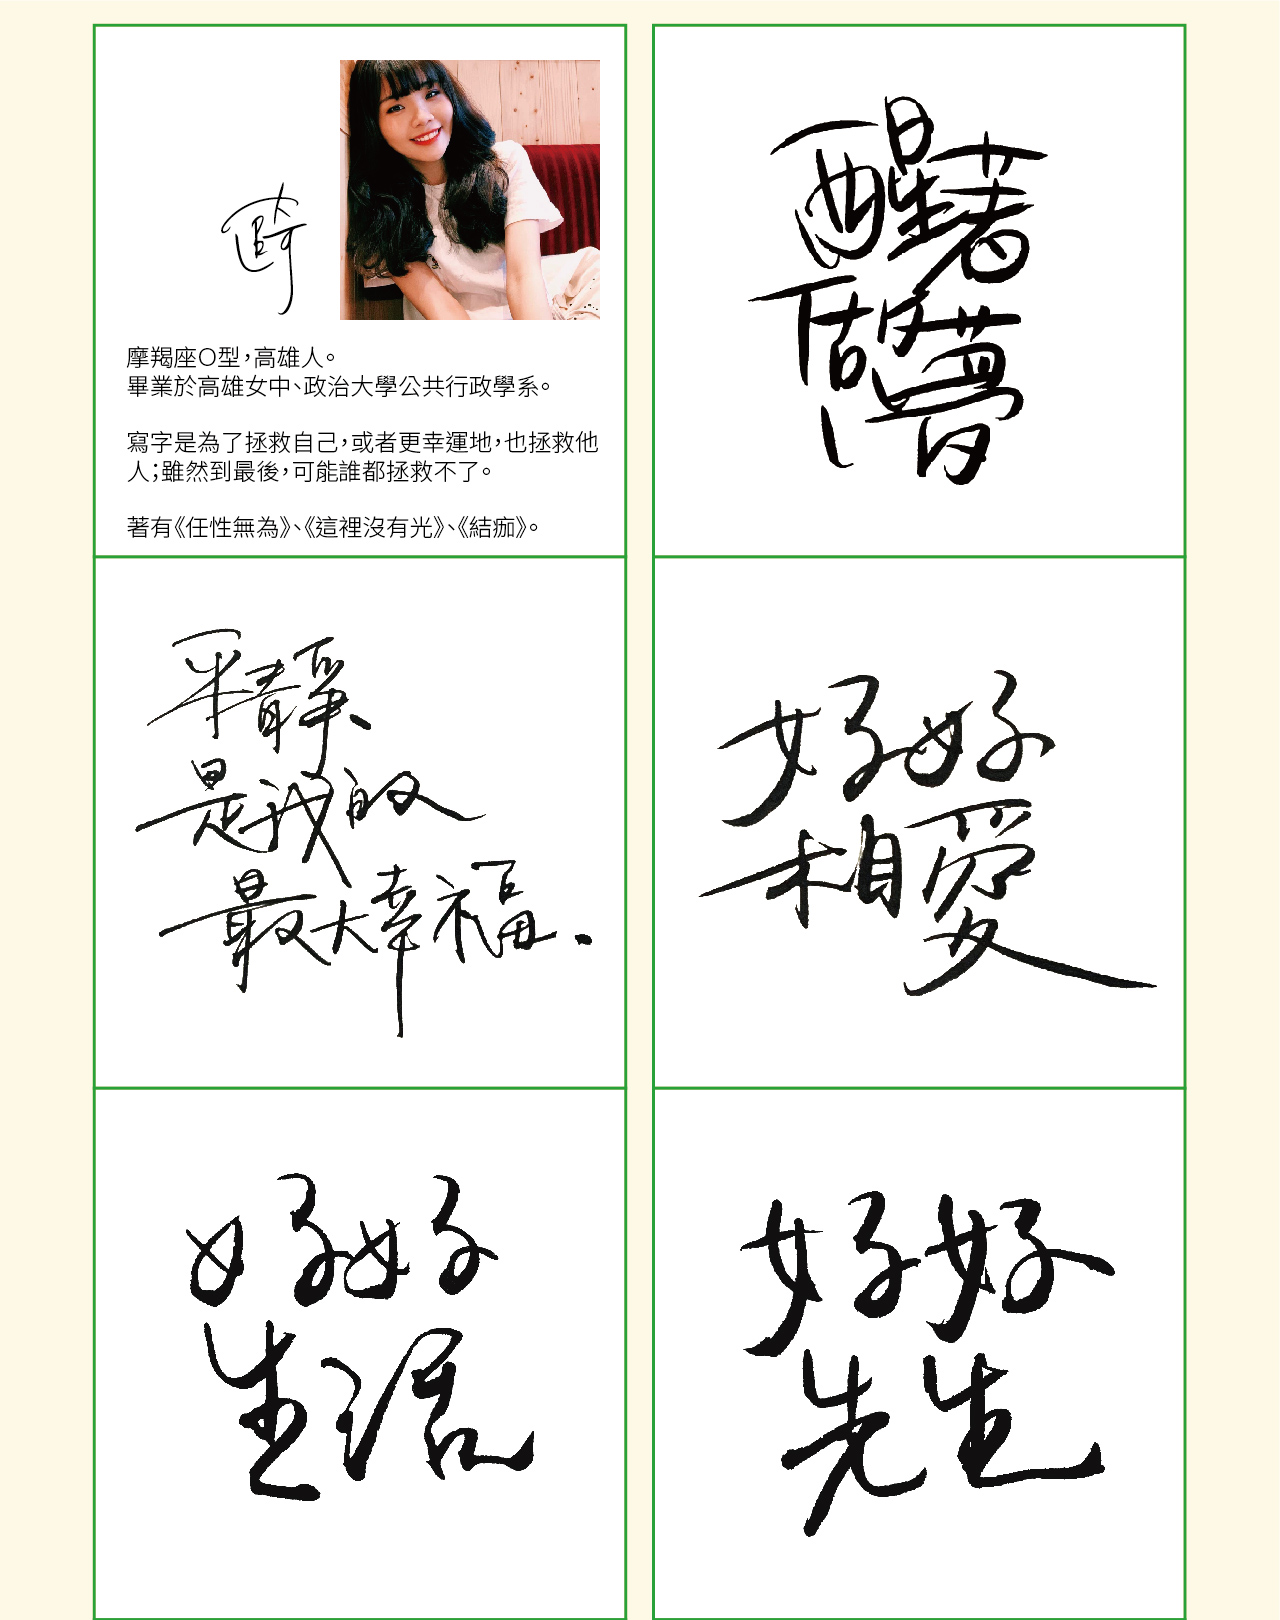 摩羯座O型，高雄人。
畢業於高雄女中、政治大學公共行政學系。
寫字是為了拯救自己，或者更幸運地，也拯救他
人；雖然到最後，可能誰都拯救不了。
著有《任性無為》、《這裡沒有光》、《結痂》。
醒著
做夢
平靜、
是我的
最大幸福.
好好
相愛
好好
生活
好好
先生